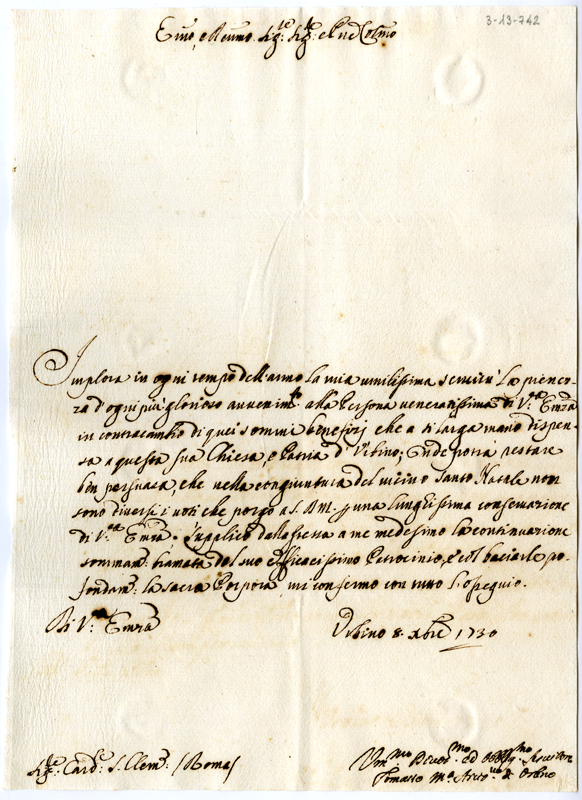 3-13-742
Emo, e Rmo Sigre Sigre e Pne Colmo
Implora in ogni tempo dell'anno la mia umilissima servitù la pienez-
za d'ogni più glorioso avvenimto alla Persona veneratissima di Vra Emza
in contracambio di quei sommi benefizj che a sì larga mano dispen-
sa a questa sua Chiesa, e Patria d'Urbino; Onde potrà restare
ben persuasa, che nella congiuntura del vicino Santo Natale non
sono diversi i voti che porgo a S. D. M. p una lunghissima conservazione
di Vra Emza. Supplico dalla stessa a me medesimo la continuazione
sommam: bramata del suo efficacissimo Patrocinio, e col baciarle pro-
fondam: la sacra Porpora mi confermo con tutto l'ossequio.
Di V: Emza
Urbino 8. Xbre 1730
Sigre Cardle S. Clemte /Roma/
Ummo Devmo ed Obblmo Servitore
Tomaso Ma Arcivo di Urbino